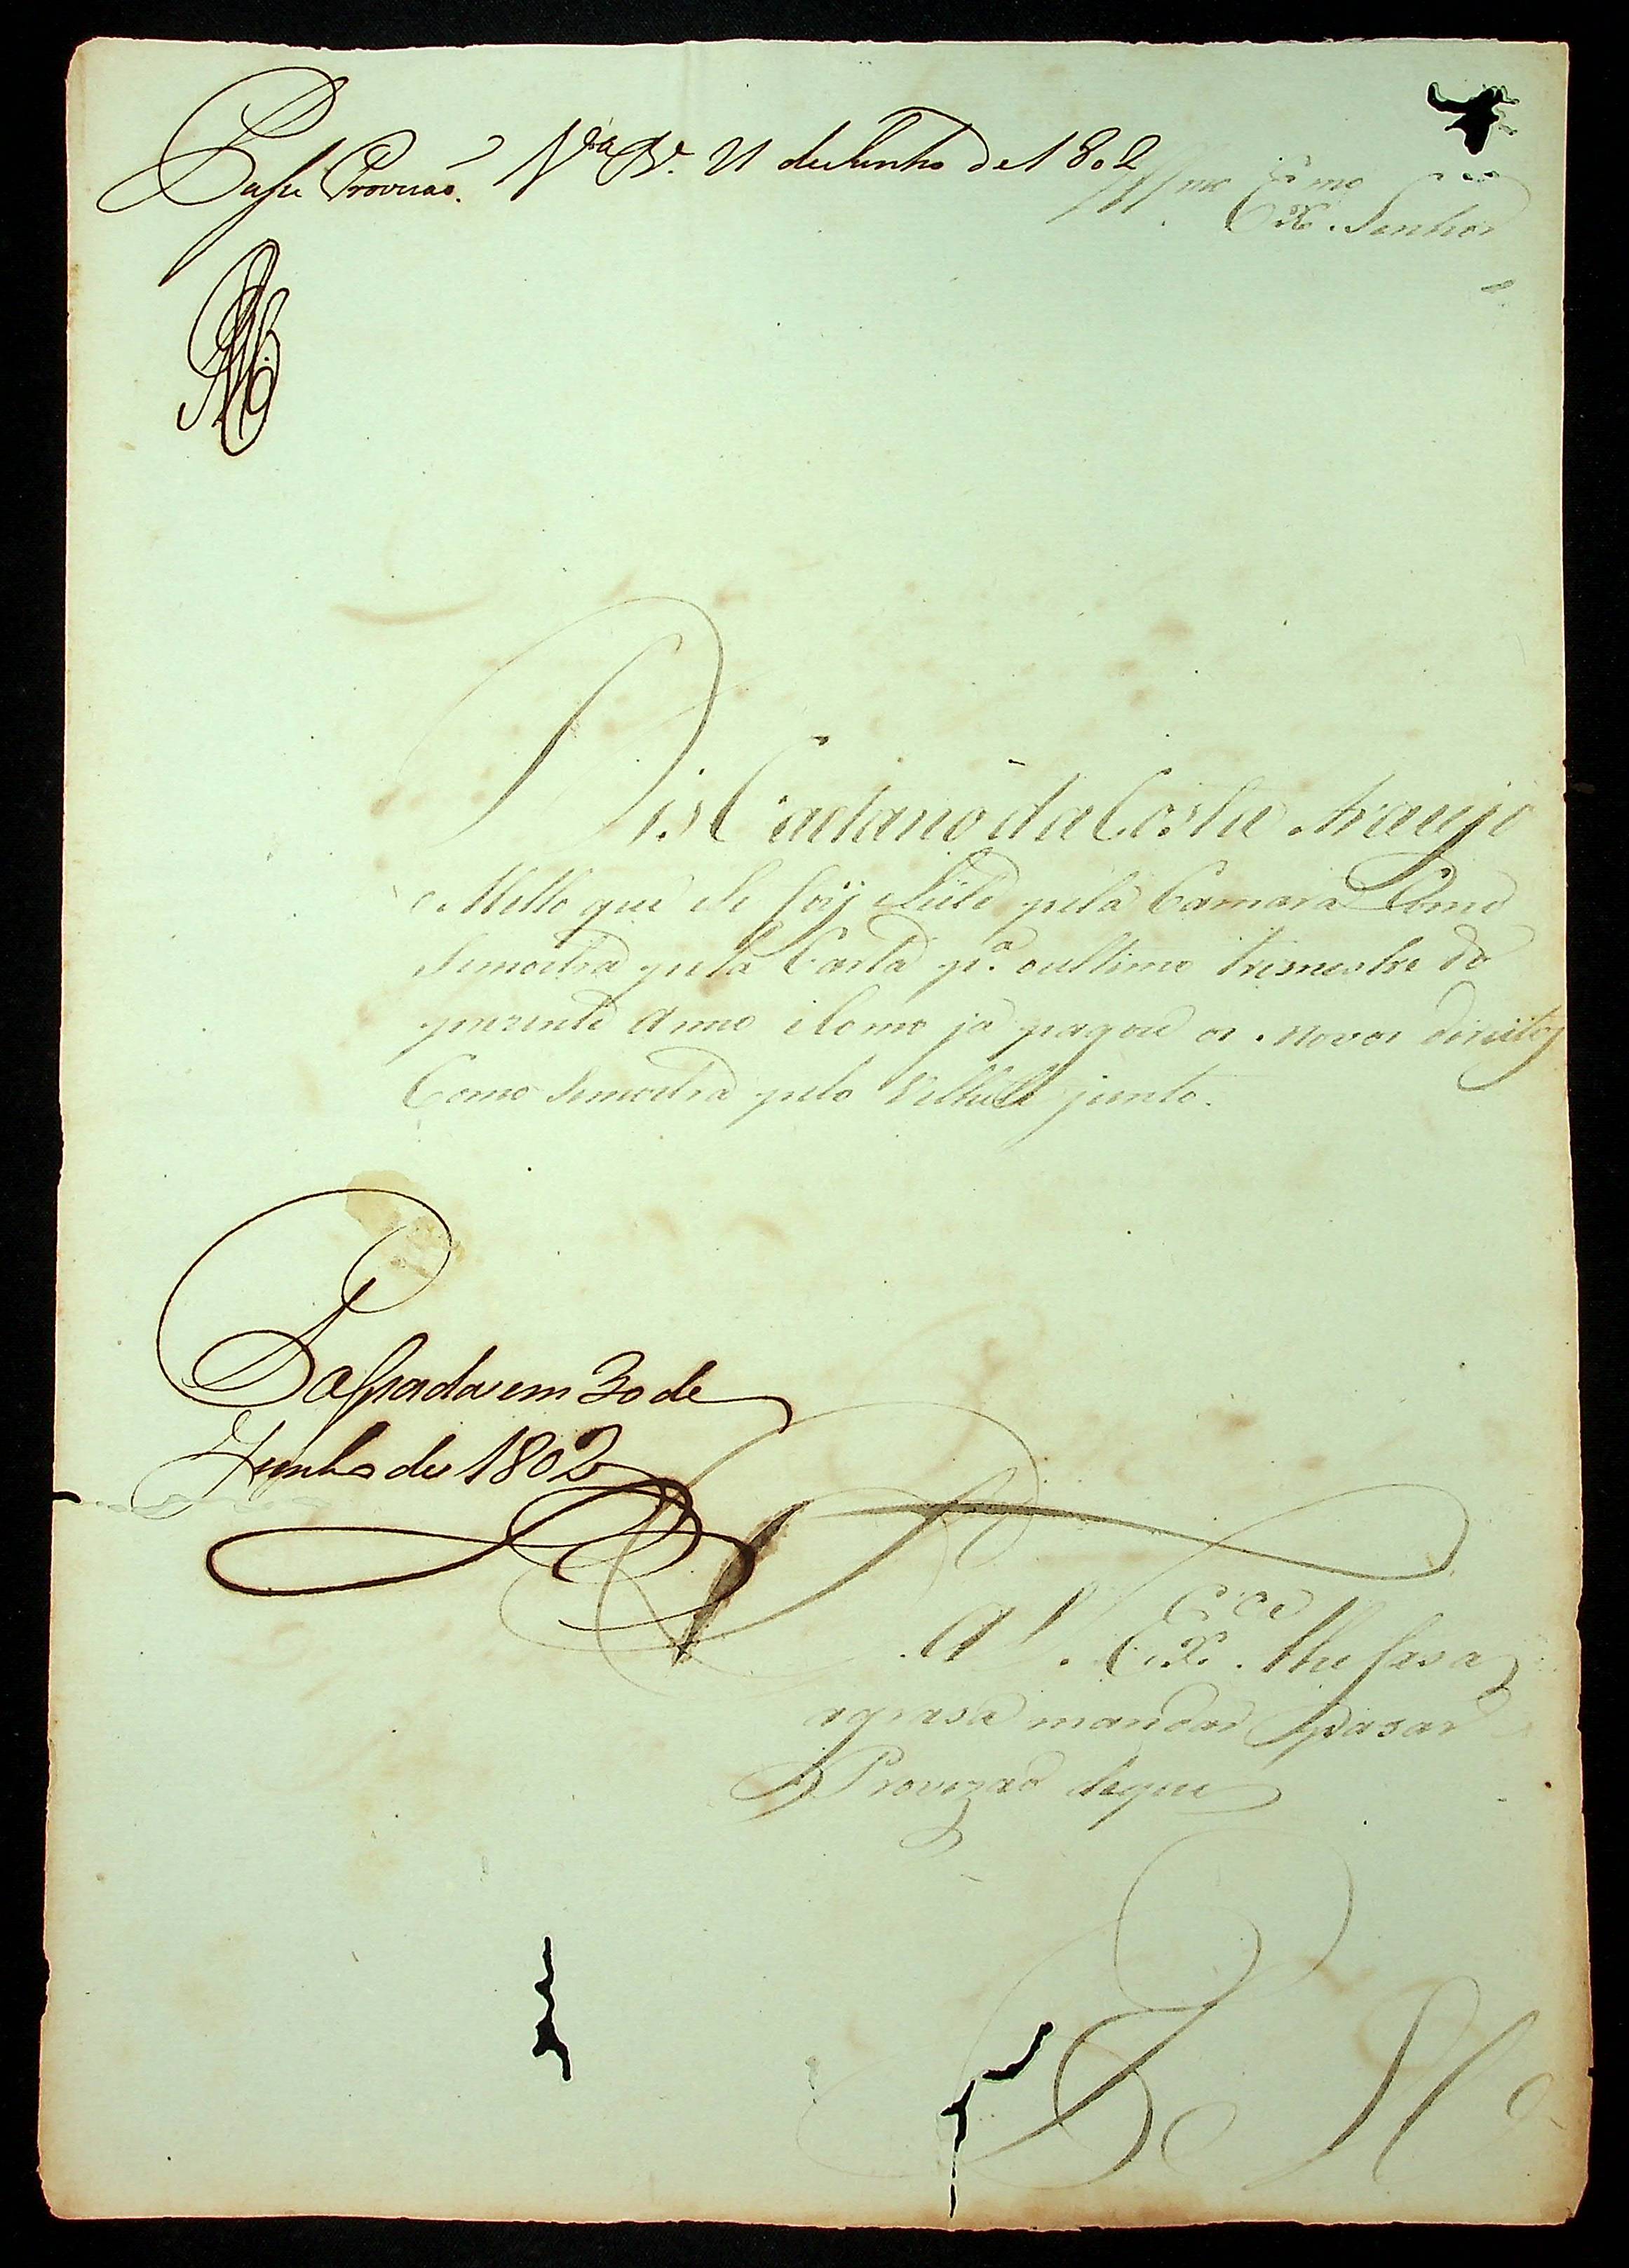 Passe Provizaõ. V.ª R.ª 21 de Junho de 1802
Illmo Exmo Senhor
Dis Caetano da Costa Araujo
e Mello que ele foy eleito pela Camara Como
Semostra pela Carta p.ª oultimo trimestre do
prezente Anno eComo já pagou os Novos direitos
Como Semostra pelo Bilhete junto.
Passada em 30 de
Junho de 1802
P. A V. Exce. lhe fasa
agrasa mandar pasar
Provizaõ do que
E R Mce